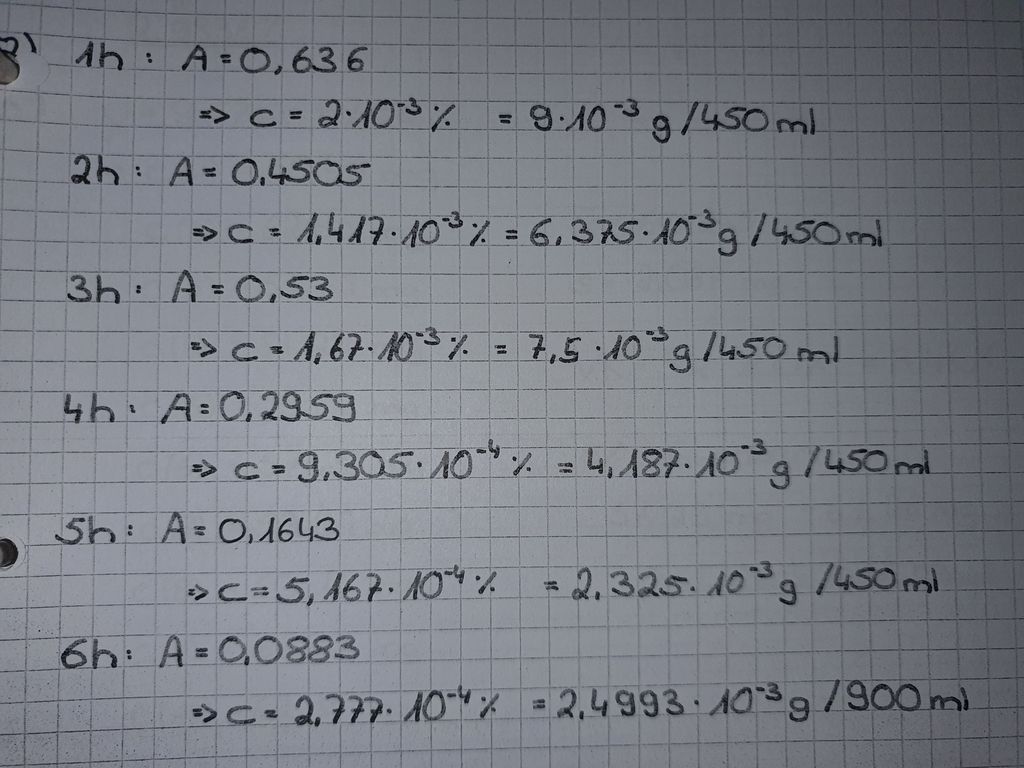 2) 1h : A = 0,636
=> c = 2·10⁻³ % = 9·10⁻³ g /450 ml
2h : A = 0.4505
=> c = 1,417·10⁻³ % = 6,375·10⁻³ g /450 ml
3h : A = 0,53
=> c = 1,67·10⁻³ % = 7,5·10⁻³ g /450 ml
4h : A = 0,2959
=> c = 9,305·10⁻⁴ % = 4,187·10⁻³ g /450 ml
5h : A = 0,1643
=> c = 5,167·10⁻⁴ % = 2,325·10⁻³ g /450 ml
6h : A = 0,0883
=> c = 2,777·10⁻⁴ % = 2,4993·10⁻³ g /900 ml